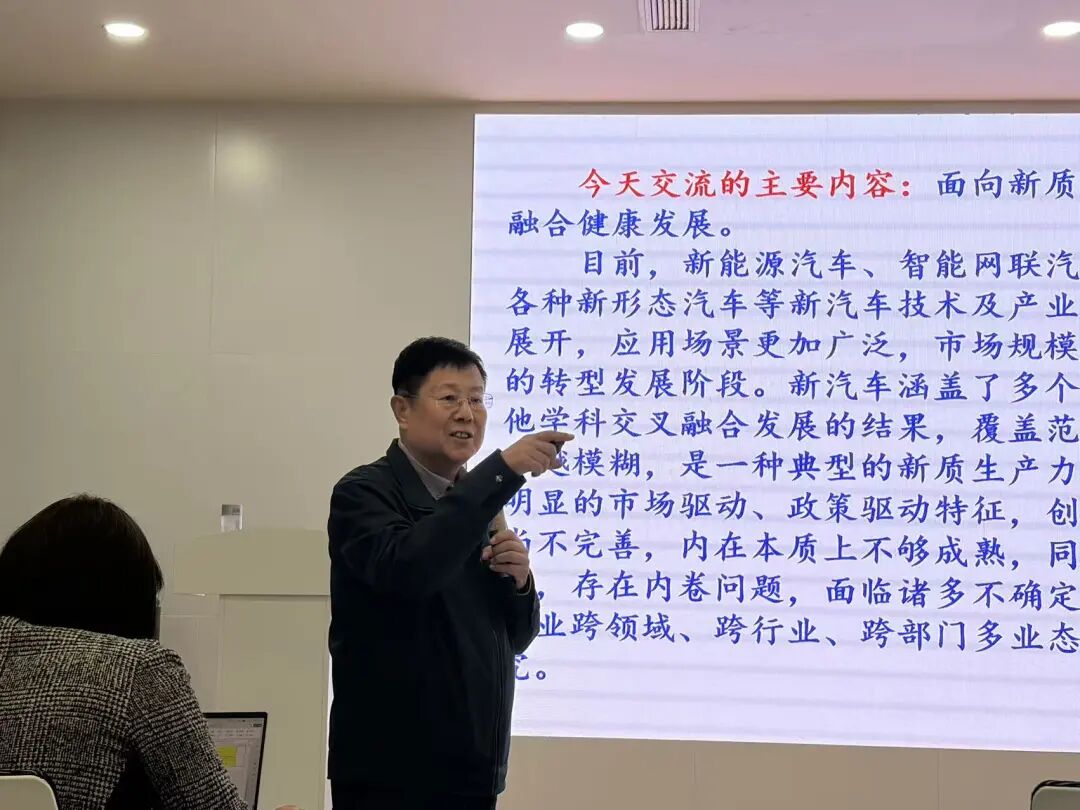 今天交流的主要内容：面向新质
融合健康发展。
目前，新能源汽车、智能网联汽
各种新形态汽车等新汽车技术及产业
展开，应用场景更加广泛，市场规模
的转型发展阶段。新汽车涵盖了多个
他学科交叉融合发展的结果，覆盖范
越模糊，是一种典型的新质生产力
明显的市场驱动、政策驱动特征，创
尚不完善，内在本质上不够成熟，同
，存在内卷问题，面临诸多不确定
业跨领域、跨行业、跨部门多业态
究。